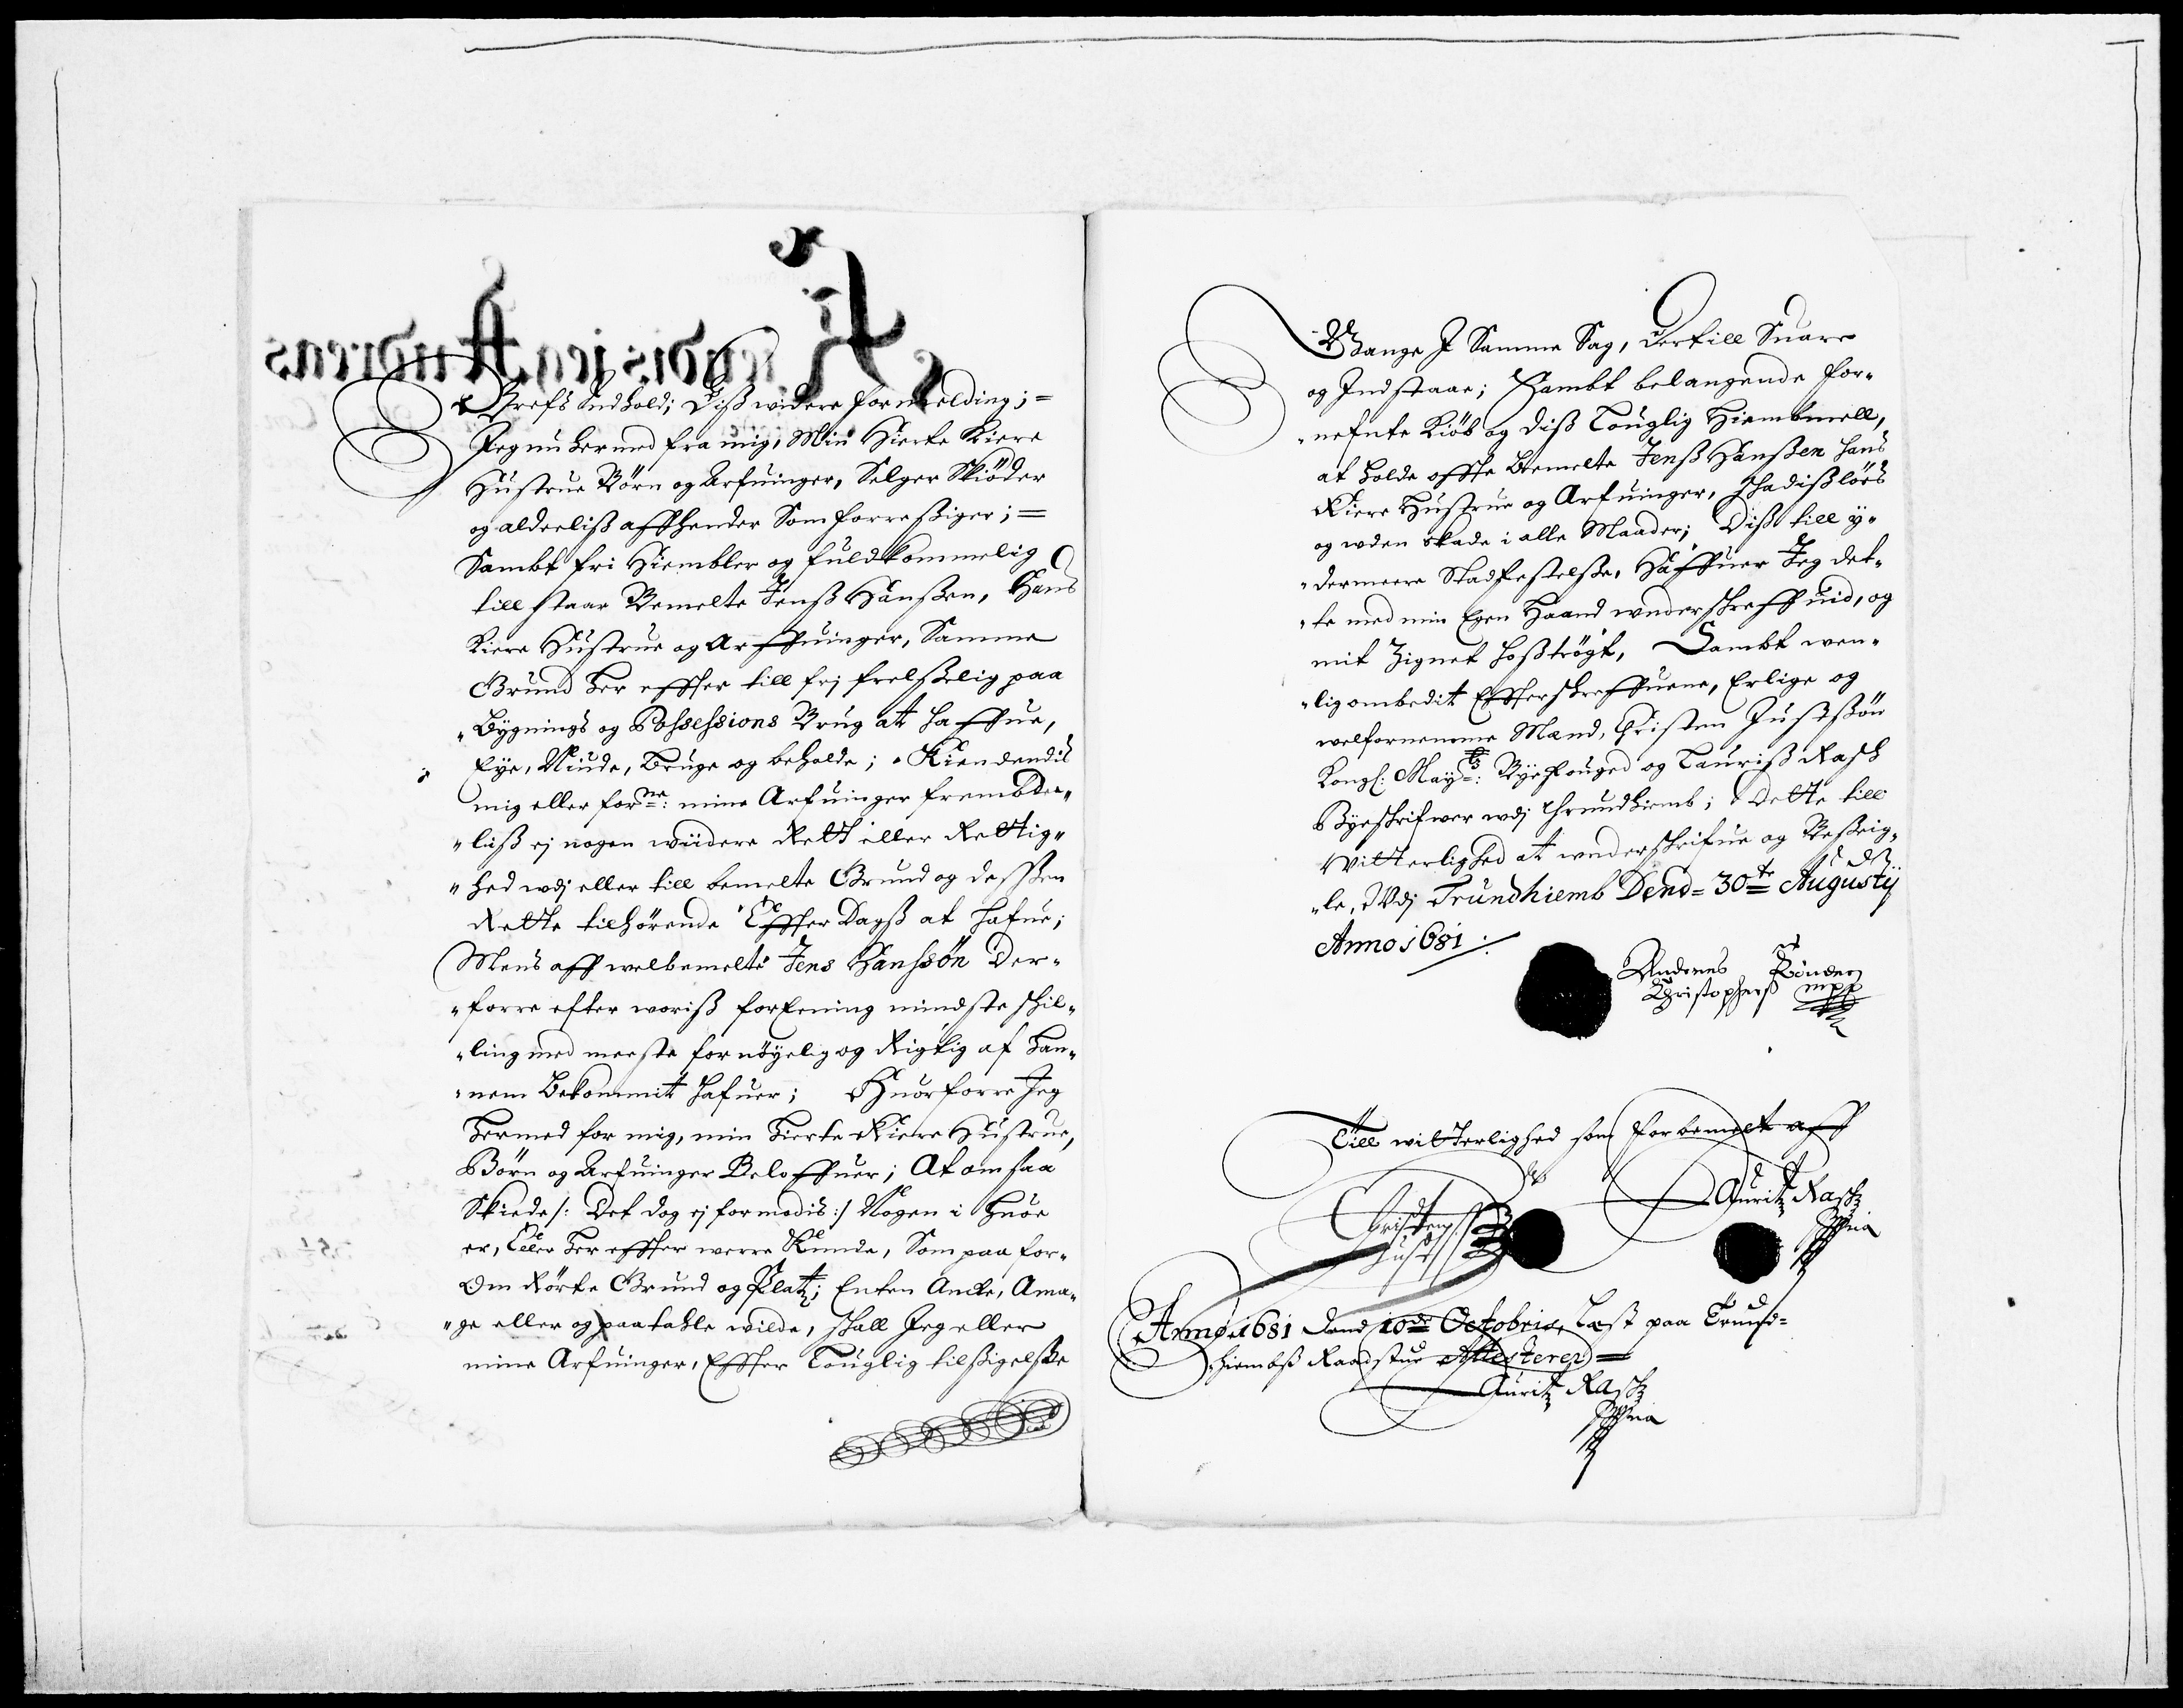 Brefs Indhold; Diss widere formelding; =
Jeg nu hermed fra mig, Min Hierte Kiere
Hustrue Börn og Arfuinger, Selger Skiöder
og alderliss affhender Som forresiger; =
Sambt fri Hiembler og fuldkommelig
till staar Bemelte Jenss Hanssen, Hans
Kiere Hustrue og Arffuinger, Samme
Grund her effter till frj frelsselig paa
"Bygnings og Possessions Brug at haffue,
Eye, Niude, Bruge og beholde; Kiendendis
mig eller forne: mine Arfuinger frembde-
"liss ej nogen widere Rett eller Rettig"
"hed wdj eller till bemelte Grund og dessen
Rette tilhörende Effter Dags at hafue;
Mens aff welbemelte Jens Hanssön Der-
"forre efter woriss forEening mindste skil-
"ling med meeste fornöyelig og Rigtig af han-
"nem Bekommit hafuer; Huorforre Jeg
hermed for mig, min hierte Kiere Hustrue,
Börn og Arfuinger Beloffuer; At om saa
Skiede /: Det dog ej formodis :/ Nogen i huor
er, Eller her effter werre Kunde, Som paa for-
Om Rörte Grund og Platz; Enten Ancke, Ama-
"ge eller og paatahle wilde, skall Jeg eller
mine Arfuinger, Effter Louglig tilsigelsse
Gange J Samme Sag, Dertill Suare
og Indstaae; Sambt belangende for-
"nefnte Kiöb og diss Louglig Hiembmell,
at holde offte Bemelte Jenss Hanssen hans
Kiere Hustrue og Arfuinger, Skadisslöss
og wden skade i alle Maader; Diss till y-
"dermeere Stadfestelsse, Haffuer Jeg det-
"te med min Egen Haand wnderskreffuid, og
mit Zignet hosströgt, Sambt wen-
"lig ombedit Effterskreffuene, Erlige og
welfornemme Mænd, Christen Justssön
Kongl: Mayts: Byefouged og Lauriss Rasch
Byeskrifwer wdj Thrundhiemb; Dette till
Witterlighed at wnderskrifue og Besseig-
"le, Wdj Trundhiemb Dend = 30te Augustij
Anno 1681 ./.
Anderes Rönder
Christophers mpp
Till witterlighed som forbemelt aff
Christen
Just
Lauritz Rasch
Anno 1681 dend 10de Octobris, Læst paa Trund=
"hiembss Raadstue Attesterer =
Lauritz Rasch